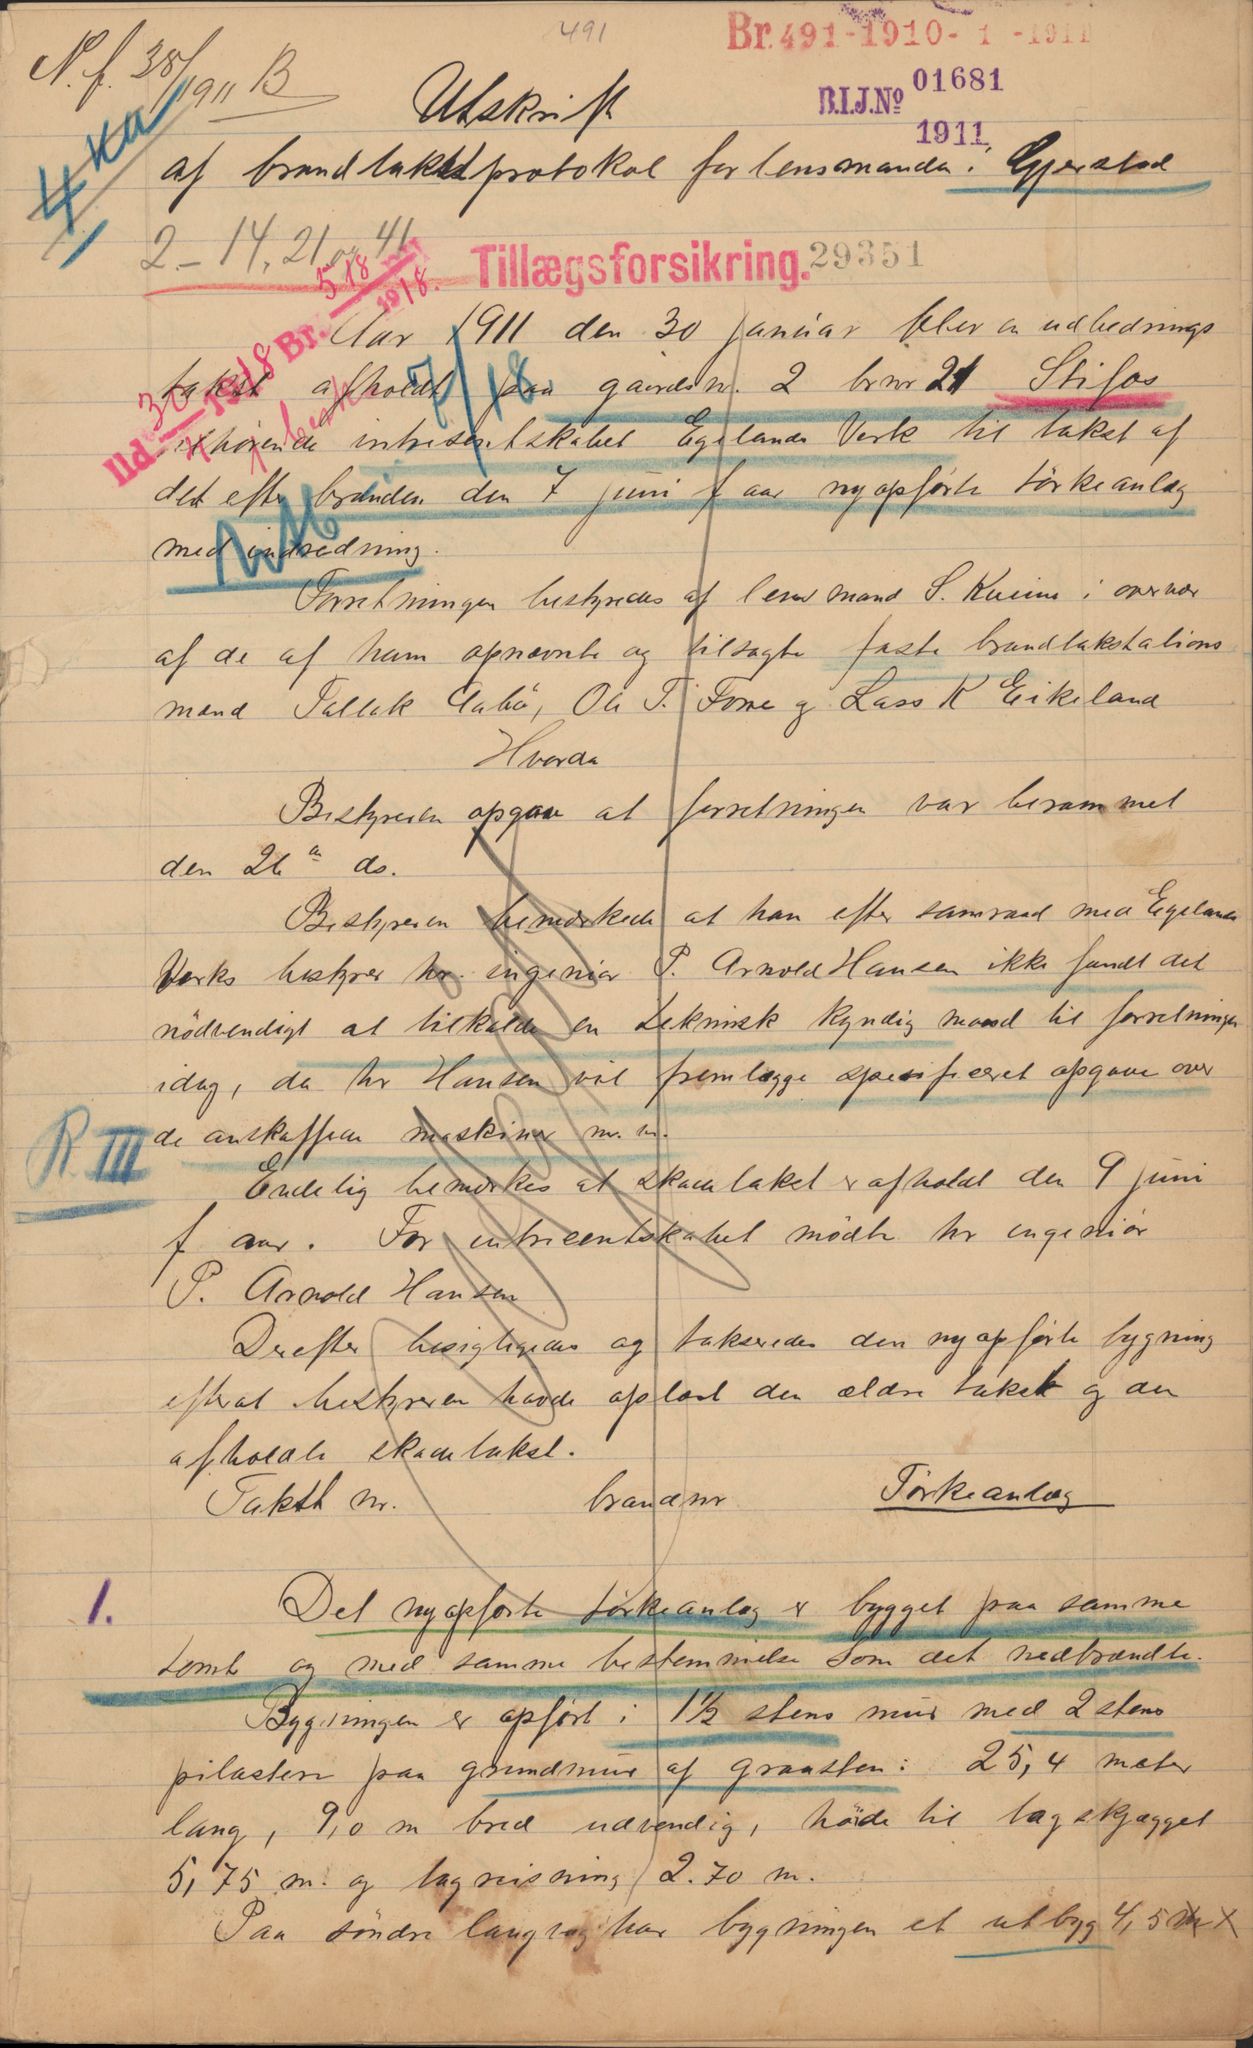 491
Br. 491-1910- 1 -1911
N. f. 38/1911 B
B.I.J.No 01681
1911
Utskrift
af brandtakstprotokol for lensmanden i Gjerstad
2 - 14, 21 og 41
Tillægsforsikring. 29351
Br. 518 1918.
Aar 1911 den 30 januar blev en udbedrings
takst afholdt paa gaardsnr. 2 brnr 21 Stifos
tilhørende intresentskabet Egelands Verk til takst af
det efter branden den 7 juni f aar nyopførte törkeanlæg
med indredning.
Forretningen bestyredes af lensmand S. Kveim i overvær
af de af ham opnævnte og tilsagte faste brandtakstations
mænd Tallak Aabö, Ole T. Fone og Lars K Eikeland
Hvorda
Bestyreren opgav at forretningen var berammet
den 26de ds.
Bestyreren bemærkede at han efter samraad med Egelands
Verks bestyrer hr. ingeniør P. Arnold Hansen ikke fandt det
nödvendigt at tilkalde en teknisk kyndig mand til forretningen
idag, da hr Hansen vil fremlægge specificeret opgave over
R. III
de anskaffede maskiner m. m.
Endelig bemerkes at skadetakst er afholdt den 9 juni
f aar. For intrecentskabet mödte hr ingeniör
P. Arnold Hansen
Derefter besigtigedes og takseredes den nyopførte bygning
efterat bestyreren havde oplæst den ældre takst og den
afholdte skadetakst.
Takst nr. brandnr Törkeanlæg
1.
Det nyopførte törkeanlæg er bygget paa samme
tomt og med samme bestemmelse som det nedbrændte.
Bygningen er opført i 1½ stens mur med 2 stens
pilastere paa grundmur af graasten: 25,4 meter
lang, 9,0 m bred udvendig, höide til tagskjægget
5,75 m. og tagreisning 2.70 m.
Paa söndre langvæg har bygningen et utbyg 4,5 m x